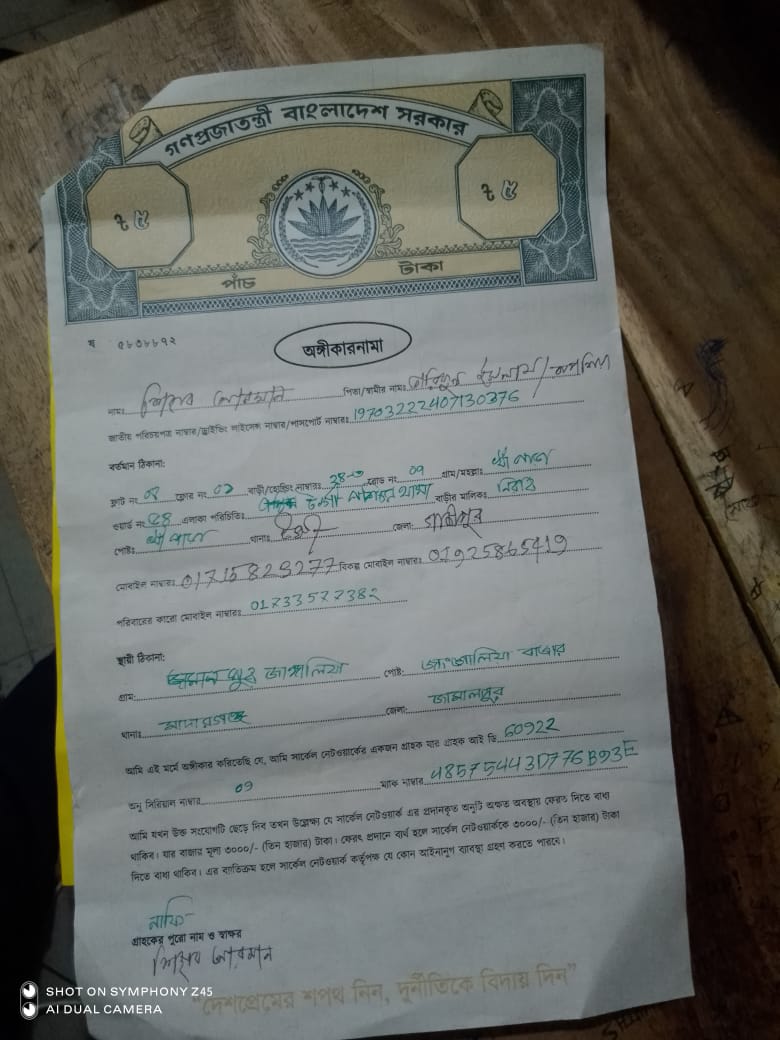 গণপ্রজাতন্ত্রী বাংলাদেশ সরকার
৳ ৫ ৳ ৫
পাঁচ টাকা
ষ ৫৮৩৮৮৭২
অঙ্গীকারনামা
নামঃ পিতা/স্বামীর নামঃ
জাতীয় পরিচয়পত্র নাম্বার/ড্রাইভিং লাইসেন্স নাম্বার/পাসপোর্ট নাম্বারঃ 19703222407130376
বর্তমান ঠিকানা:
ফ্লাট নং ফ্লোর নং বাড়ী/হোল্ডিং নাম্বারঃ রোড নং 09 গ্রাম/মহল্লাঃ
ওয়ার্ড নং এলাকা পরিচিতিঃ বাড়ীর মালিকঃ
পোষ্টঃ থানাঃ টঙ্গী জেলাঃ গাজীপুর
মোবাইল নাম্বারঃ 01715829277 বিকল্প মোবাইল নাম্বারঃ 01925865419
পরিবারের কারো মোবাইল নাম্বারঃ 01733577382
স্থায়ী ঠিকানা:
গ্রাম: জাঙ্গালিয়া পোষ্ট: জাঙ্গালিয়া বাজার
থানাঃ মাদারগঞ্জ জেলা: জামালপুর
আমি এই মর্মে অঙ্গীকার করিতেছি যে, আমি সার্কেল নেটওয়ার্কের একজন গ্রাহক যার গ্রাহক আই ডি 60922
অনু সিরিয়াল নাম্বার 09 ম্যাক নাম্বার 485754443D776B93E
আমি যখন উক্ত সংযোগটি ছেড়ে দিব তখন উল্লেখ্য যে সার্কেল নেটওয়ার্ক এর প্রদানকৃত অনুটি অক্ষত অবস্থায় ফেরত দিতে বাধ্য
থাকিব। যার বাজার মূল্য ৩০০০/- (তিন হাজার) টাকা। ফেরৎ প্রদানে ব্যর্থ হলে সার্কেল নেটওয়ার্ককে ৩০০০/- (তিন হাজার) টাকা
দিতে বাধ্য থাকিব। এর ব্যতিক্রম হলে সার্কেল নেটওয়ার্ক কর্তৃপক্ষ যে কোন আইনানুগ ব্যবস্থা গ্রহণ করতে পারবে।
গ্রাহকের পুরো নাম ও স্বাক্ষর
"দেশপ্রেমের শপথ নিন, দুর্নীতিকে বিদায় দিন"
SHOT ON SYMPHONY Z45
AI DUAL CAMERA